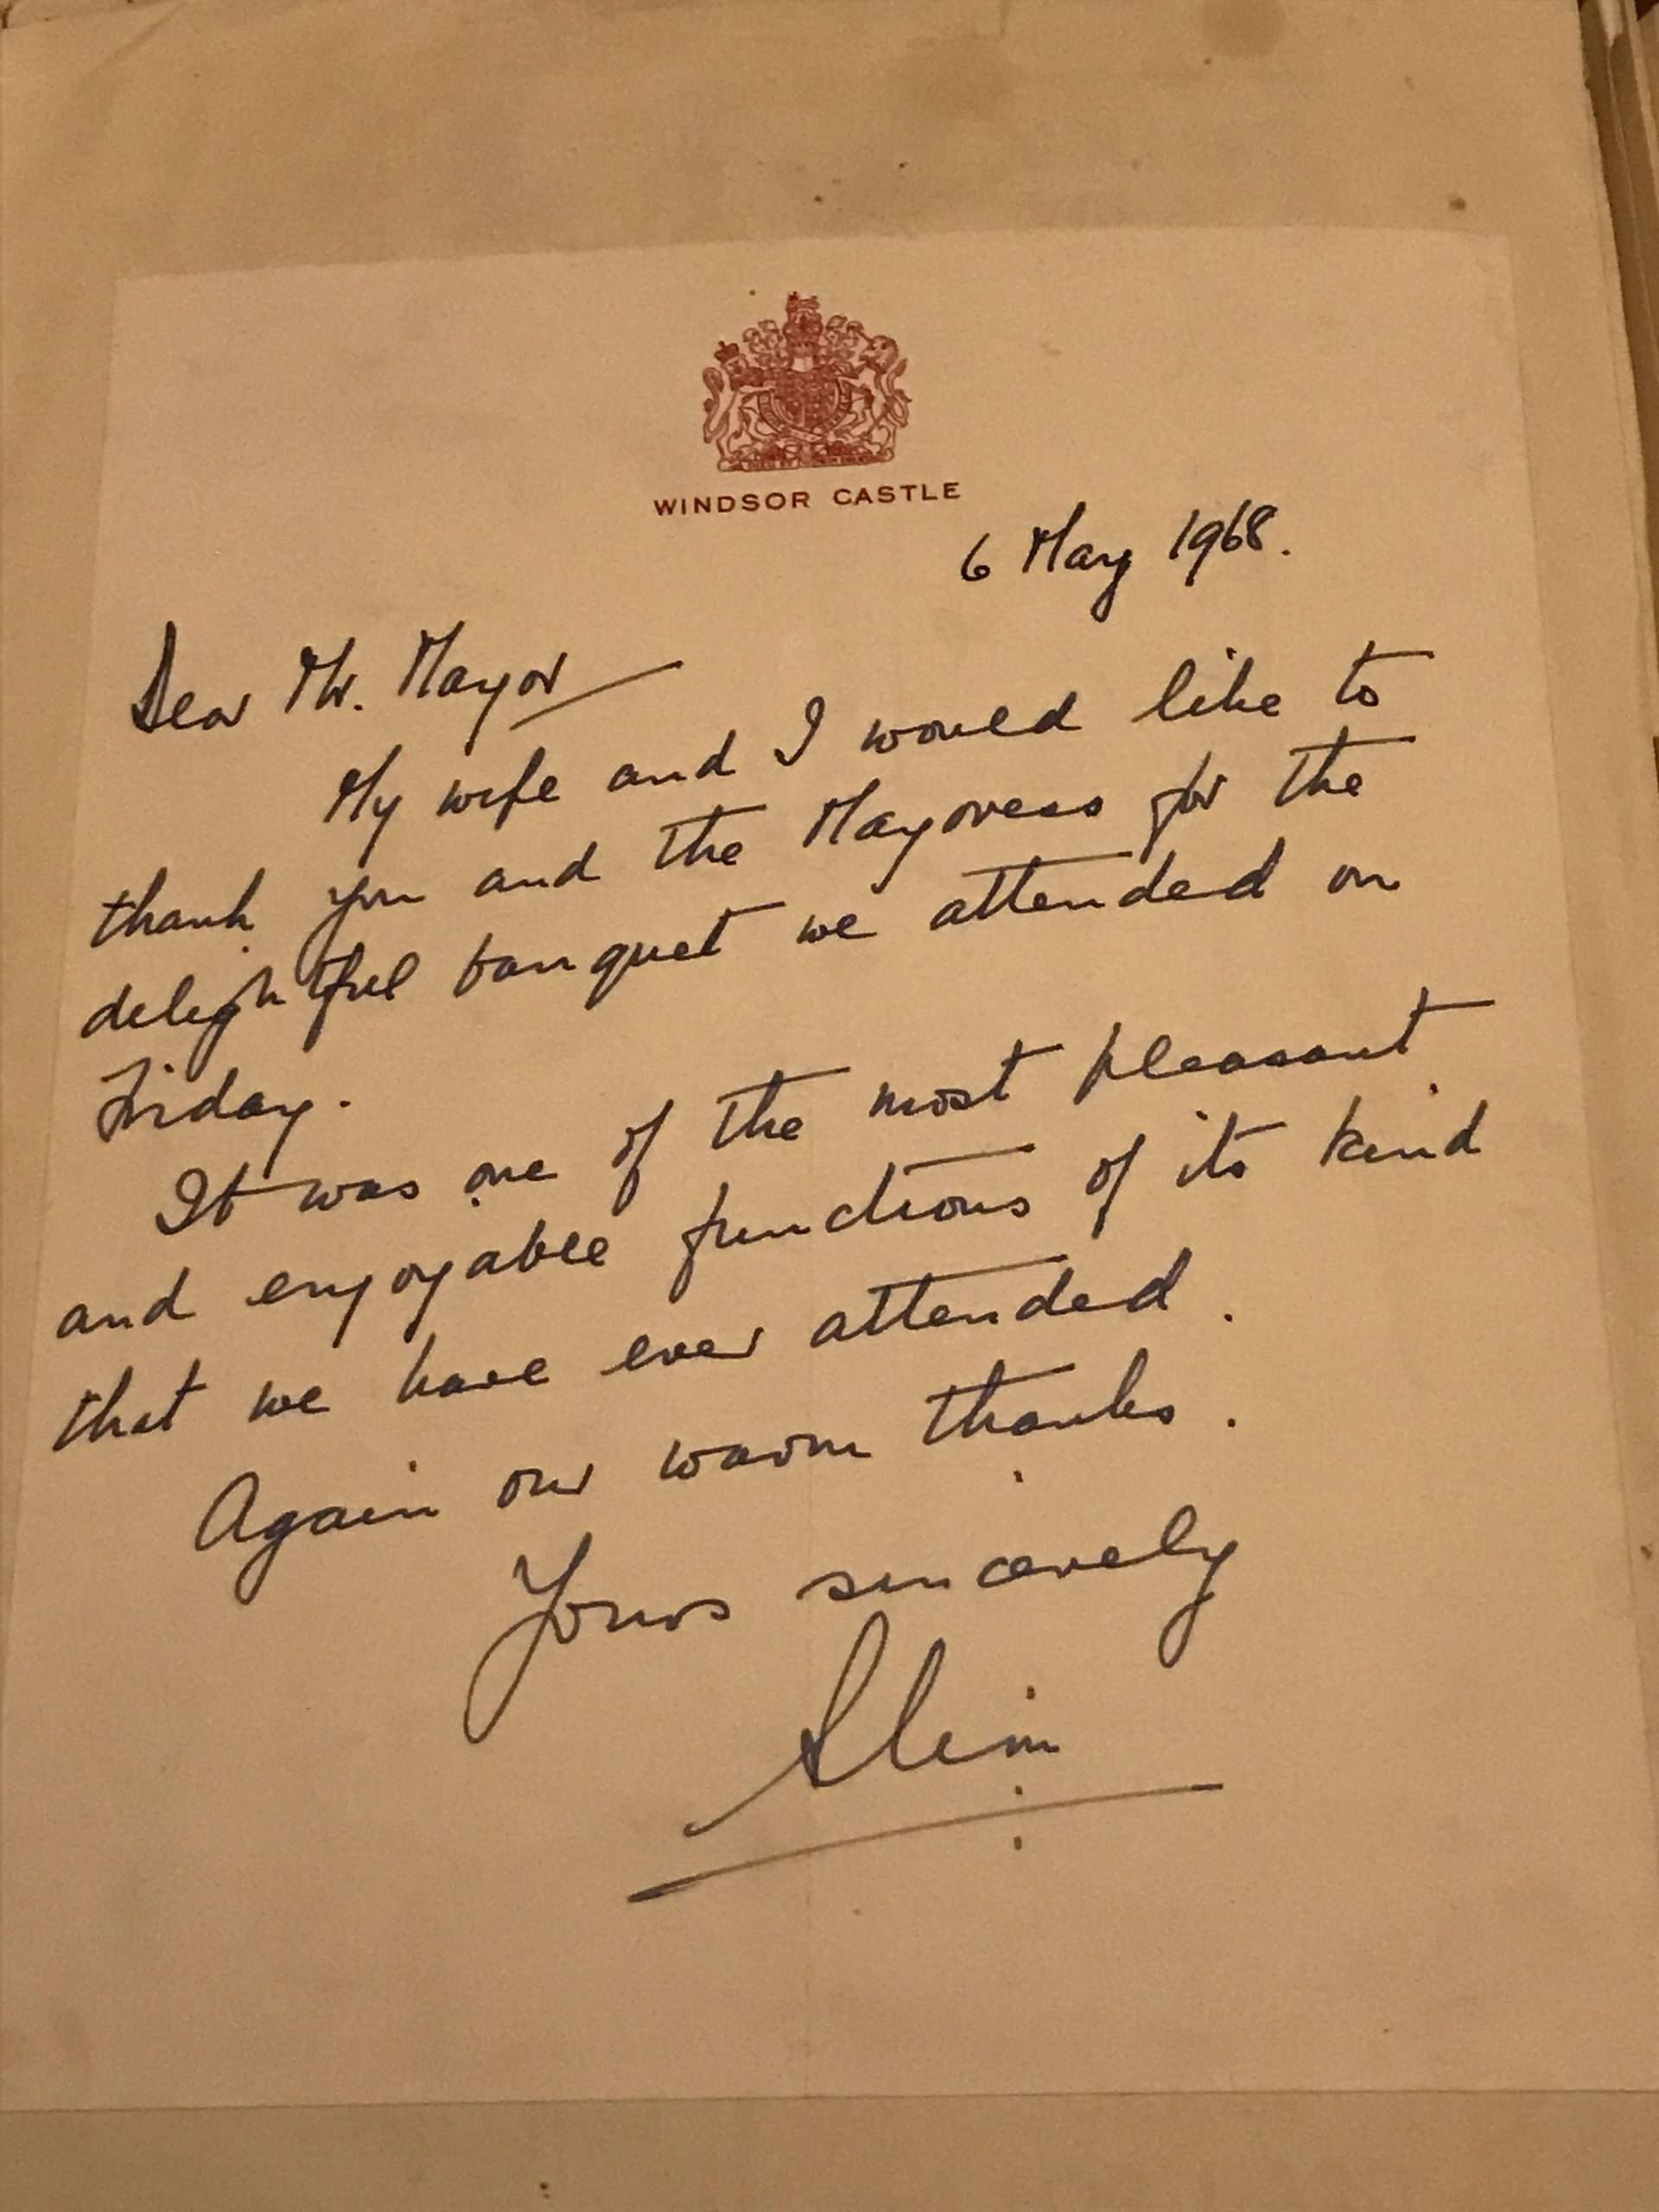 WINDSOR CASTLE
6 May 1968.
Dear Mr. Mayor
My wife and I would like to
thank you and the Mayoress for the
delightful banquet we attended on
Friday.
It was one of the most pleasant
and enjoyable functions of its kind
that we have ever attended.
Again our warm thanks.
Yours sincerely
Slim